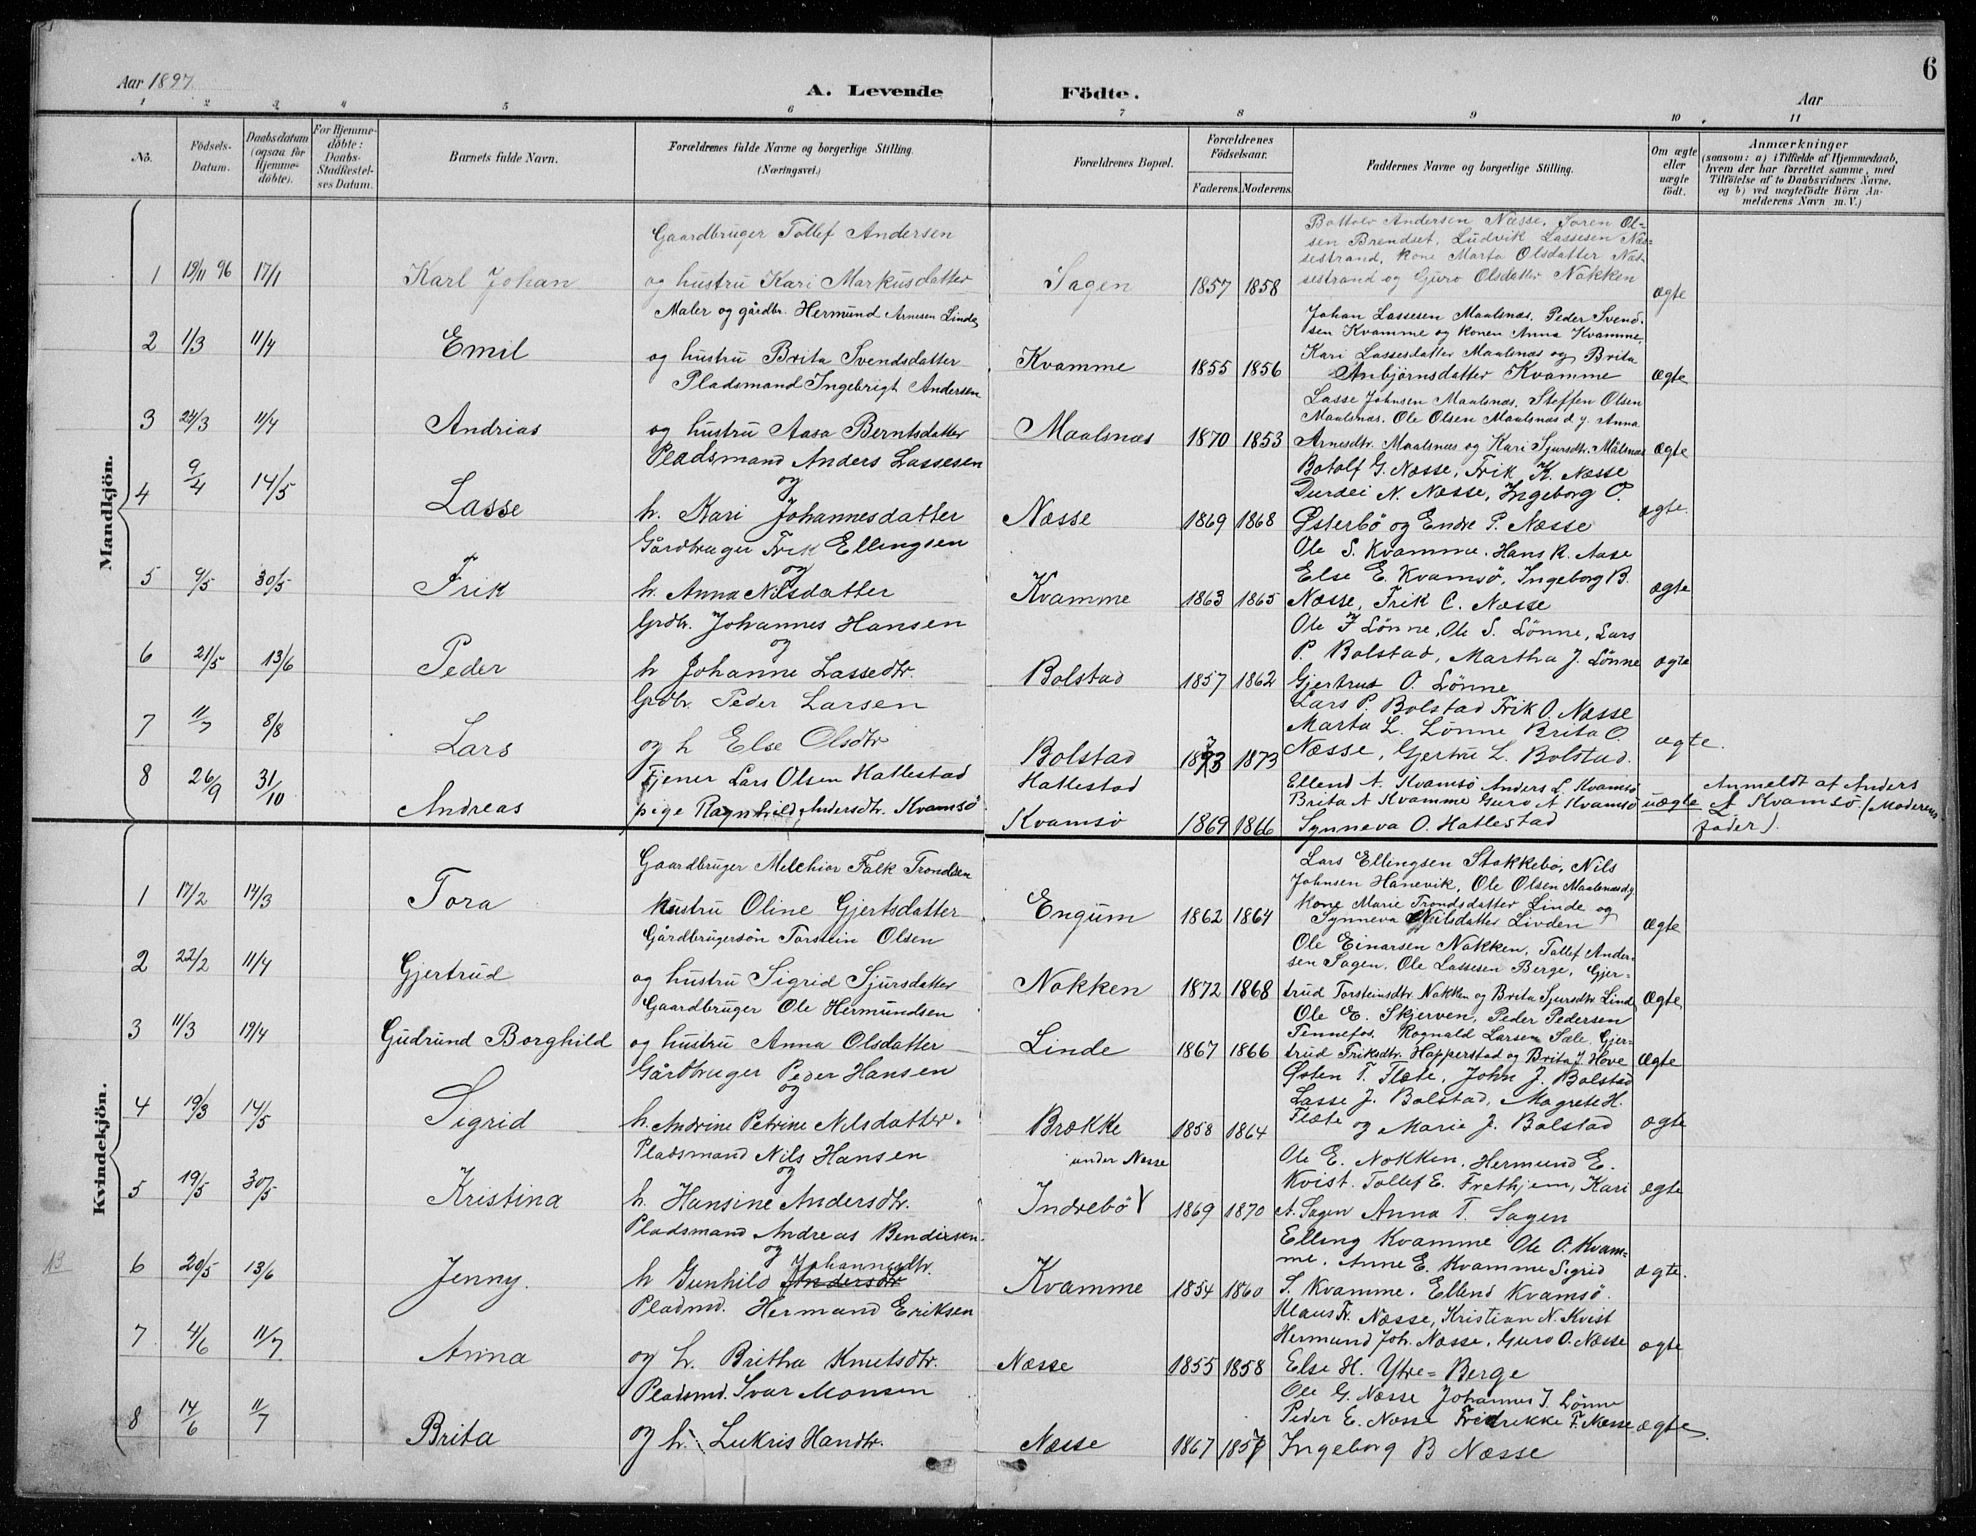 6
Aar 1897.
A. Levende Födte.
Aar
1 2 3 4 5 6 7 8 9 10 11
No.
Födsels-Datum.
Daabsdatum (ogsaa for Hjemme-döbte).
For Hjemme-döbte: Daabs-Stadfæstel-ses Datum.
Barnets fulde Navn.
Forældrenes fulde Navne og borgerlige Stilling. (Næringsvei.)
Forældrenes Bopæl.
Forældrenes Födselsaar.
Faderens. Moderens.
Faddernes Navne og borgerlige Stilling.
Om ægte eller uægte födt.
Anmærkninger
(saasom: a) i Tilfælde af Hjemmedaab, hvem der har forrettet samme, med Tilföielse af to Daabsvidners Navne, og b) ved uægtefödte Börn An-melderens Navn m.V.)
Mandkjön.
Gaardbruger Tollef Andersen
1 19/11 96 17/1 Karl Johan og hustru Kari Markusdatter Sagen 1857 1858 ægte
Bottolv Andersen Næsse, Soren Ol-
sen Brendset, Ludvik Lassesen Næs-
sestrand, kone Marta Olsdatter Næs-
sestrand og Guro Olsdatter Nokken
Maler og gårdbr. Hermund Arnesen Linde
2 1/3 11/4 Emil og hustru Brita Svendsdatter Kvamme 1855 1856 ægte
Johan Lassesen Maalsnæs, Peder Svend-
sen Kvamme og konen Anna Kvamme,
Kari Lassesdatter Maalsnæs og Brita
Anbjörnsdatter Kvamme
Pladsmand Ingebrigt Andersen
3 24/3 11/4 Andrias og hustru Aasa Berntsdatter Maalsnæs 1870 1853 ægte
Lasse Johnsen Maalsnæs, Steffen Olsen
Maalsnæs, Ole Olsen Maalsnæs d.y. Anna
Arnesdtr. Maalsnæs og Kari Sjursdtr. Målsnæs
Pladsmand Anders Lassesen
og
4 9/4 14/5 Lasse h. Kari Johannesdatter Næsse 1869 1868 ægte.
Botolf G. Næsse, Frik K. Næsse
Durdei N. Næsse, Ingeborg O.
Østerbö og Endre P. Næsse
Gårdbruger Frik Ellingsen
og
5 9/5 30/5 Frik h. Anna Nilsdatter Kvamme 1863 1865 ægte
Ole S. Kvamme, Hans R. Aase
Else E. Kvamsö, Ingeborg B.
Næsse, Frik C. Næsse
Grdbr. Johannes Hansen
og
6 21/5 13/6 Peder h Johanne Lassedtr. Bolstad 1857 1862 ægte
Ole J Lönne, Ole S. Lönne, Lars
P. Bolstad, Martha J. Lönne
Gjertrud O. Lönne
Grdbr. Peder Larsen
7 11/7 8/8 Lars og h Else Olsdtr Bolstad 1873 1873 ægte.
Lars P. Bolstad Frik O. Næsse
Marta L. Lönne Brita O.
Næsse, Gjertru L. Bolstad.
Tjener Lars Olsen Hallestad Hallestad
8 26/9 31/10 Andreas pige Ragnhild Andersdtr. Kvamsö Kvamsö 1869 1866 uægte
Ellend A. Kvamsö Anders L. Kvamsö
Brita A Kvamme Guro A Kvamsö
Synneva O. Hallestad
Anmeldt af Anders
A Kvamsö. (Moderens
fader).
Kvindekjön.
Gaardbruger Melchior Falk Trondsen
1 17/2 14/3 Tora hustru Oline Gjertsdatter Engum 1862 1864 ægte
Lars Ellingsen Stokkebö, Nils
Johnsen Hanevik, Ole Olsen Maalsnæs d.y
kone Marie Trondsdatter Linde og
Synneva Neilsdatter Livden
Gårdbrugersön Torstein Olsen
2 22/2 11/4 Gjertrud og hustru Sigrid Sjursdatter Nokken 1872 1868 ægte
Ole Einarsen Nokken, Tollef Ander-
sen Sagen, Ole Lassesen Berge, Gjer-
trud Torsteinsdtr Nokken og Brita Sjursdtr Lind
Gaardbruger Ole Hermundsen
3 11/3 19/4 Gudrund Borghild og hustru Anna Olsdatter Linde 1867 1866 ægte
Ole E. Skjerven, Peder Pedersen
Tennefos, Rognald Larsen Sæle, Gjer-
trud Friksdtr. Hopperstad og Brita J. Hove
Gårdbruger Peder Hansen
og
4 19/3 14/5 Sigrid h. Andrine Petrine Nilsdatter. Brække 1858 1864 ægte
under Næsse
Østen T. Flæte, John J. Bolstad
Lasse J. Bolstad, Magrete H.
Flæte og Marie J. Bolstad
Pladsmand Nils Hansen
og
5 19/5 30/5 Kristina h. Hansine Andersdtr. Indrebö 1869 1870 ægte
Ole E. Nokken, Hermund E.
Kvist. Tollef E. Frethjem, Kari
A. Sagen Anna T. Sagen
Pladsmand Andreas Bendixsen.
og Johannesdtr.
13 6 20/5 13/6 Jenny. h Gunhild Andersdtr Kvamme 1854 1860 ægte.
Elling Kvamme Ole O. Kvam-
me. Anne E. Kvamme Sigrid
S. Kvamme. Ellend Kvamsö.
Pladmd. Hermand Eriksen
7 4/6 11/7 Anna og h. Britha Knutsdtr. Næsse 1855 1858 ægte
Klaus Fr. Næsse, Kristian N. Kvist
Hermund Joh. Næsse, Guro O. Næsse
Else H. Ytre-Berge
Pladsmd. Ivar Monsen
8 14/6 11/7 Brita og h. Lukris Handtr. Næsse 1867 1857 ægte.
Ole G. Næsse Johannes I. Lönne
Peder E. Næsse Fridrekke F. Næsse
Ingeborg B Næsse